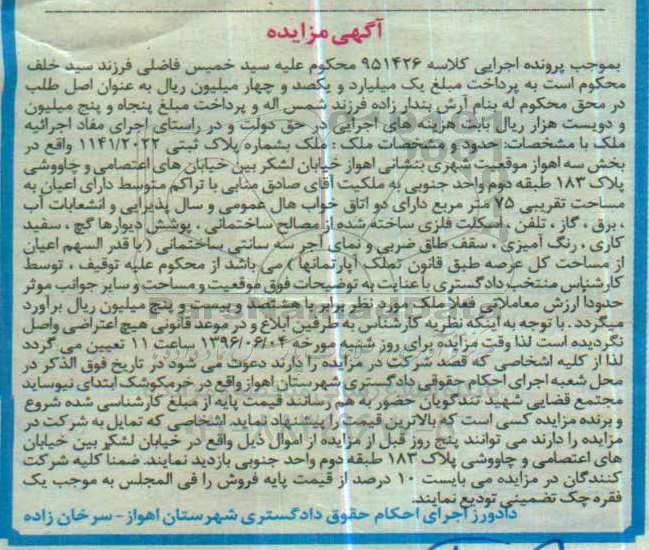 آگهی مزایده
بموجب پرونده اجرایی کلاسه ۹۵۱۴۲۶ محکوم علیه سید خمیس فاضلی فرزند سید خلف
محکوم است به پرداخت مبلغ یک میلیارد و یکصد و چهار میلیون ریال به عنوان اصل طلب
در محق محکوم له بنام آرش بندار زاده فرزند شمس اله و پرداخت مبلغ پنجاه و پنج میلیون
و دویست هزار ریال بابت هزینه های اجرایی در حق دولت و در راستای اجرای مفاد اجرائیه
ملک با مشخصات: حدود و مشخصات ملک : ملک بشماره پلاک ثبتی ۱۱۴۱/۲۰۲۲ واقع در
بخش سه اهواز موقعیت شهری بنشانی اهواز خیابان لشکر بین خیابان های اعتصامی و چاووشی
پلاک ۱۸۳ طبقه دوم واحد جنوبی به ملکیت آقای صادق منابی با تراکم متوسط دارای اعیان به
مساحت تقریبی ۷۵ متر مربع دارای دو اتاق خواب هال عمومی و سال پذیرایی و انشعابات آب
، برق ، گاز ، تلفن ، اسکلت فلزی ساخته شده از مصالح ساختمانی ، پوشش دیوارها گچ ، سفید
کاری ، رنگ آمیزی ، سقف طاق ضربی و نمای آجر سه سانتی ساختمانی ( با قدر السهم اعیان
از مساحت کل عرصه طبق قانون تملک آپارتمانها ) می باشد از محکوم علیه توقیف ، توسط
کارشناس منتخب دادگستری با عنایت به توضیحات فوق موقعیت و مساحت و سایر جوانب موثر
حدوداً ارزش معاملاتی فعلاً ملک مورد نظر برابر با هشتصد و بیست و پنج میلیون ریال برآورد
میگردد . با توجه به اینکه نظریه کارشناس به طرفین ابلاغ و در موعد قانونی هیچ اعتراضی واصل
نگردیده است لذا وقت مزایده برای روز شنبه مورخه ۱۳۹۶/۰۶/۰۴ ساعت ۱۱ تعیین می گردد
لذا از کلیه اشخاصی که قصد شرکت در مزایده را دارند دعوت می شود در تاریخ فوق الذکر در
محل شعبه اجرای احکام حقوقی دادگستری شهرستان اهواز واقع در خرمکوشک ابتدای نیوساید
مجتمع قضایی شهید تندگویان حضور به هم رسانند قیمت پایه از مبلغ کارشناسی شده شروع
و برنده مزایده کسی است که بالاترین قیمت را پیشنهاد نماید. اشخاصی که تمایل به شرکت در
مزایده را دارند می توانند پنج روز قبل از مزایده از اموال ذیل واقع در خیابان لشکر بین خیابان
های اعتصامی و چاووشی پلاک ۱۸۳ طبقه دوم واحد جنوبی بازدید نمایند. ضمناً کلیه شرکت
کنندگان در مزایده می بایست ۱۰ درصد از قیمت پایه فروش را فی المجلس به موجب یک
فقره چک تضمینی تودیع نمایند.
دادورز اجرای احکام حقوق دادگستری شهرستان اهواز- سرخان زاده